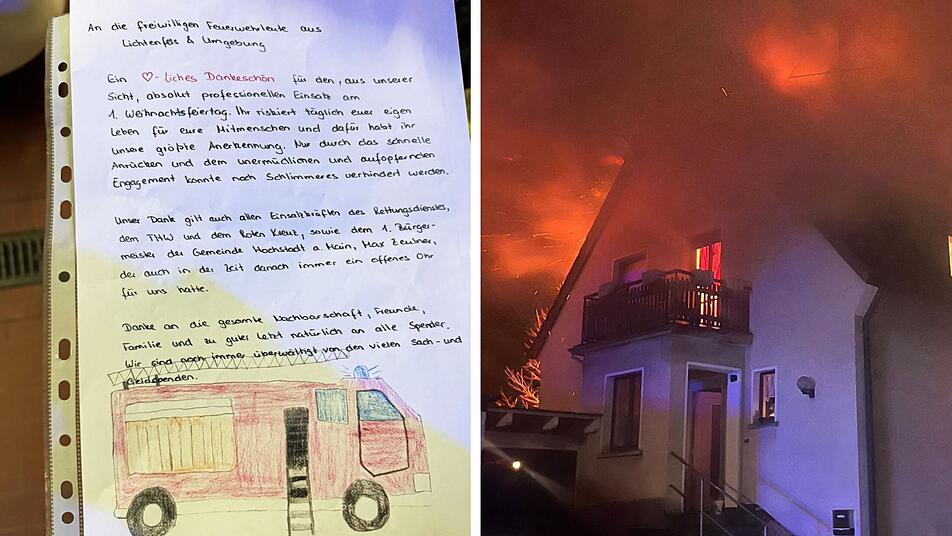 An die freiwilligen Feuerwehrleute aus
Lichtenfels & Umgebung
Ein ♡-liches Dankeschön für den, aus unserer
Sicht, absolut professionellen Einsatz am
1. Weihnachtsfeiertag. Ihr riskiert täglich euer eigen
Leben für eure Mitmenschen und dafür habt ihr
unsere größte Anerkennung. Nur durch das schnelle
Anrücken und dem unermüdlichen und aufopfernden
Engagement konnte noch Schlimmeres verhindert werden.
Unser Dank gilt auch allen Einsatzkräften des Rettungsdienstes,
dem THW und dem Roten Kreuz, sowie dem 1. Bürger-
meister der Gemeinde Hochstadt a. Main, Max Zeulner,
der auch in der Zeit danach immer ein offenes Ohr
für uns hatte.
Danke an die gesamte Nachbarschaft, Freunde,
Familie und zu guter Letzt natürlich an alle Spender.
Wir sind noch immer überwältigt von den vielen Sach- und
Geldspenden.